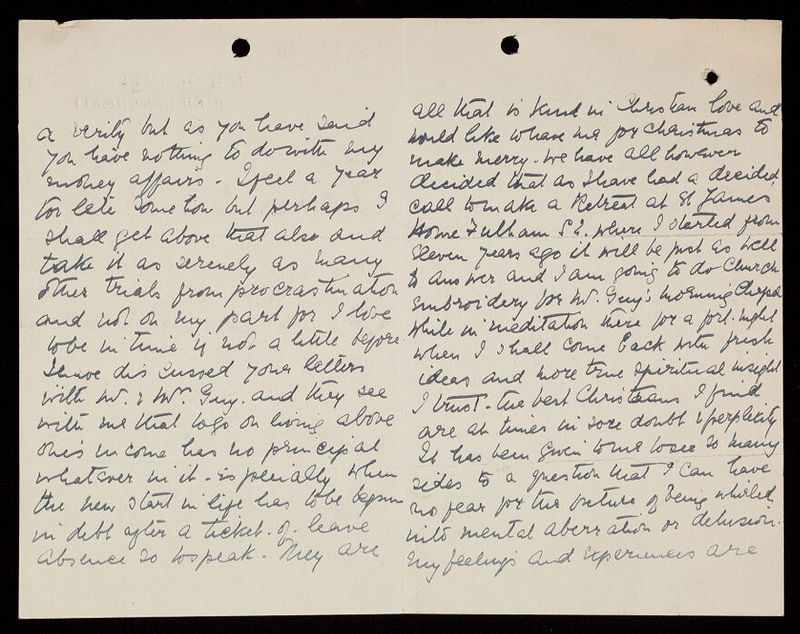 a verity but as you have said
you have nothing to do with my
money affairs - I feel a year
too late somehow but perhaps I
shall get above that also and
take it as serenely as many
other trials from procrastination
and not on my part for I love
to be in time if not a little before
I have discussed your letters
with Mr. & Mrs. Guy. and they see
with me that to go on living above
one's income has no principal
whatever in it - especially when
the new start in life has to be begun
in debt after a ticket. of. leave
absence so to speak. They are
all that is kind in Christian love and
would like to have me for Christmas to
make merry. We have all however
decided that as I have had a decided
call to make a Retreat at St James
Home Fulham S.E. where I started from
Eleven years ago it will be just as well
to answer and I am going to do Church
Embroidery for Mr. Guy's Morning Chapel
while in meditation there for a fort. night
when I shall come back with fresh
ideas and more true spiritual insight
I trust. The best Christians I find
are at times in sore doubt & perplexity
It has been given to me to see so many
sides to a question that I can have
no fear for the future of being whirled
into mental aberration or delusion.
My feelings and experiences are